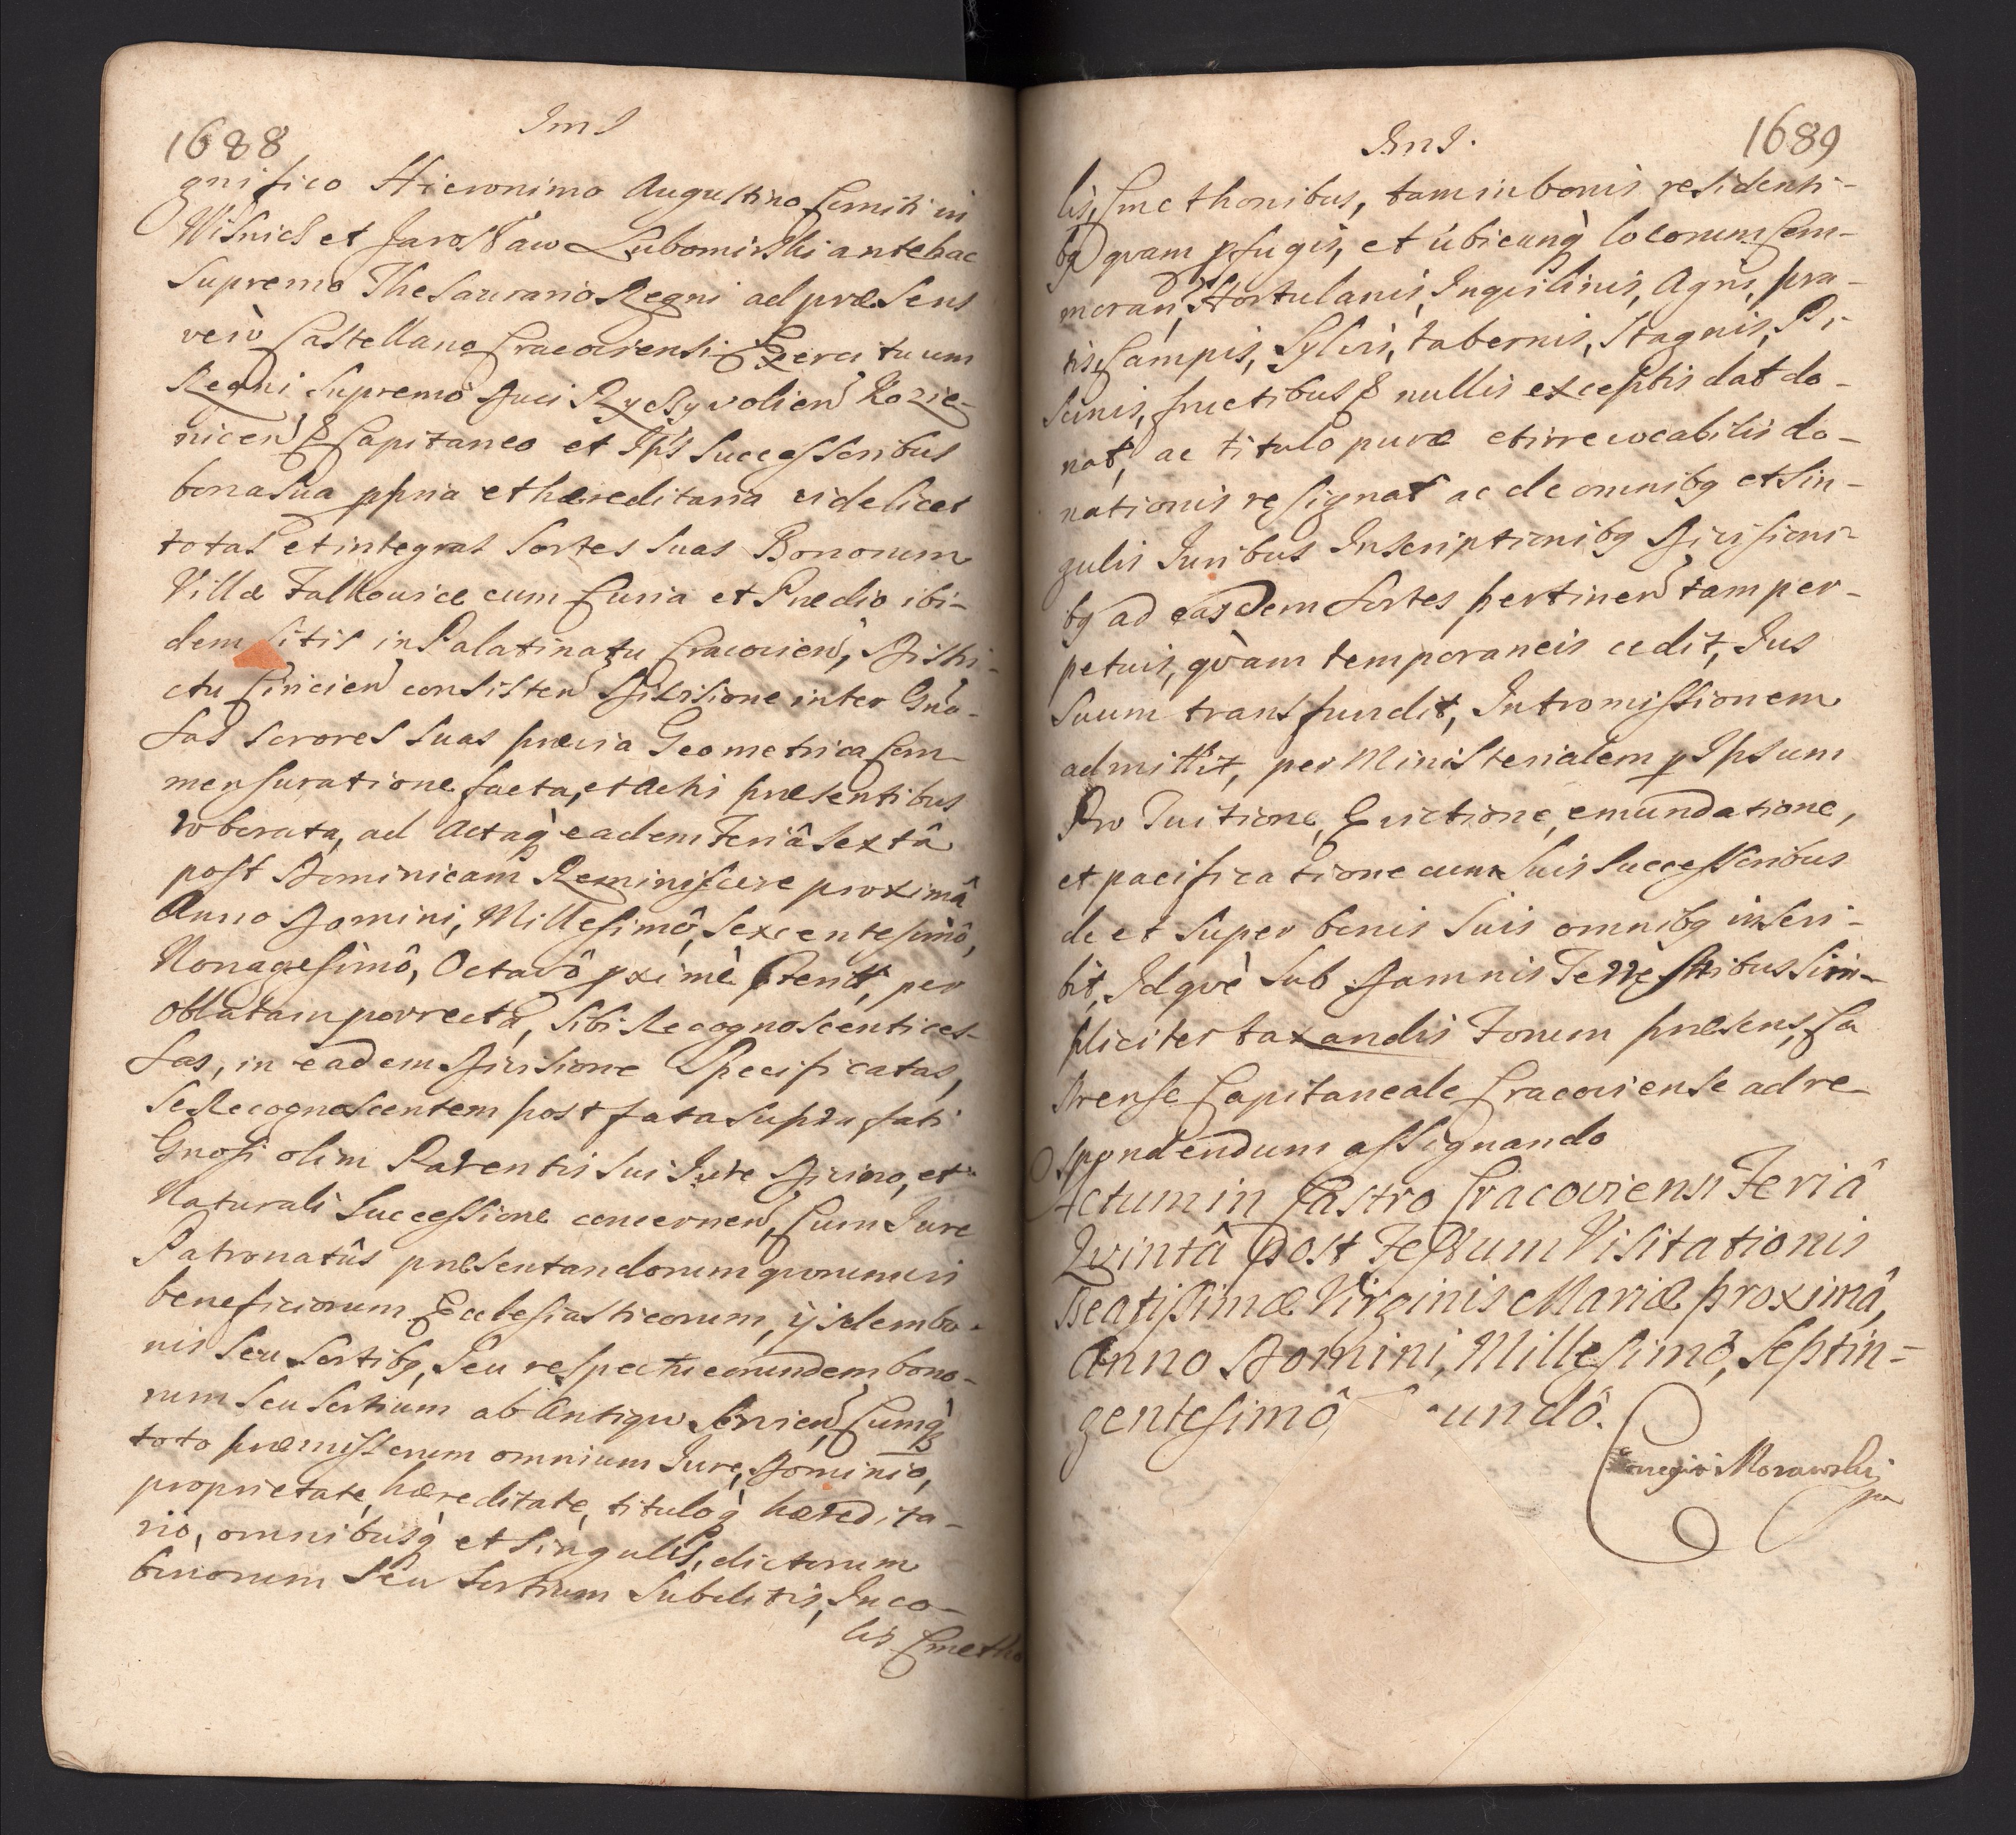 1688
Jms
gnifico Hieronimo Augustino Comiti in
Wisnics et Jarosław Lubomirski antehac
Supremo Thesaurario Regni ad præsens
verò Castellano Cracoviensi Exercituum
Regni Supremo Duci Ryczyvolien Kozie-
nicen & Capitaneo et Ips Successoribus
bona sua ppria et hæreditaria videlicet
totas et integras Sortes Suas Bonorum
Villæ Falkowice cum Curia et Prædio ibi-
dem sitis in Palatinatu Cracovien, Distri-
ctu Scircien consisten Divisione inter Gnò-
sas Sorores Suas prævia Geometrica Com-
mensuratione facta, et Actis præsentibus
roborata, ad Actaq̀ eadem Feriâ Sextâ
post Dominicam Reminiscere proximâ
Anno Domini, Millesimô, Sexcentesimô,
Nonagesimô, Octavô pximè pterit, per
Oblatam porrecta, Sibi Recognoscenti ces-
sas, in eadem Divisione Specificatas,
Se Recognoscentem post fata Suprafati
Gnosi olim Parentis Sui Jure Divino, et
Naturali Successione concernen, Cum Jure
Patronatûs præsentandorum quorumvis
beneficiorum Ecclesiasticorum, ijsdem bo-
nis Seu Sortibq, Seu respectu eorundem bono-
rum Seu Sortium ab Antiquo Servien, Cumq̀
toto præmissorum omnium Jure, Dominio,
proprietate, hæreditate, tituloq̀ hæredita-
rio, omnibusq̀ et Singulis, dictorum
bonorum Seu Sortium Subditis, Inco-
lis Cmetho
Jms.
1689
lis, Cmethonibus, tam in bonis residenti-
bq quam pfugis, et ubicunq̀ locorum Com-
moran, Hortulanis, Inquilinis, Agris, pra-
tis, Campis, Sylvis, tabernis, Stagnis, Pi-
scinis, fructibus & nullis exceptis dat do-
nat, ac titulo puræ et irrevocabilis do-
nationis resignat ac de omnibq et Sin-
gulis Juribus Inscriptionibq Divisioni-
bq ad easdem Sortes pertinen tam per-
petuis, quàm temporaneis cedit, Jus
Suum transfundit, Intromissionem
admittit, per Ministerialem p Ipsum
Pro Tuitione, Evictione, emundatione,
et pacificatione cum Suis Successoribus
de et Super bonis Suis omnibq inscri-
bit, Idquè Sub Damnis Terrestribus Sim-
pliciter taxandis Forum præsens, Ca
strense Capitaneale Cracoviense ad re-
spondendum assignando
Actum in Castro Cracoviensi Feriâ
Quintâ post Festum Visitationis
Beatissimæ Virginis Mariæ proximâ,
Anno Domini, Millesimô, Septin-
gentesimô undô.
Morawski